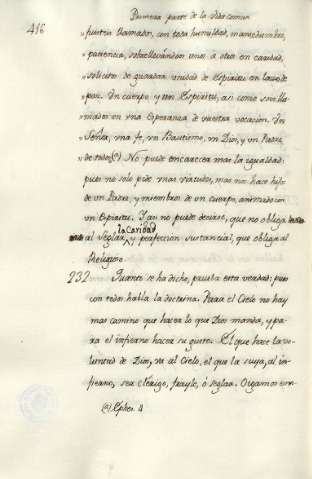 Primera parte de la Vida comun
416
" fuisteis llamados, con toda humildad, mansedumbre,
" paciencia, sobrellevandoos unos à otros en caridad,
" solicitos de guardar unidad de Espiritu en lazo de
" paz. Un cuerpo y un Espiritu, asi como sois lla-
" mados en una Esperanza de vuestra vocacion. Un
" Señor, una fe, un Bautismo, un Dios, y un Padre
" de todos (a) No puede encarecer mas la igualdad:
pues no solo pide unas virtudes, mas nos hace hijos
de un Padre, y miembros de un cuerpo, animado con
un Espiritu. Y asi no puede decirse, que no obliga
al Seglar la Caridad y perfeccion sustancial, que obliga al
Religioso.
232 Quanto se ha dicho, prueba esta verdad: pues
con todos habla la doctrina. Para el Cielo no hay
mas camino que hacer lo que Dios manda, y pa-
ra el infierno hacer su gusto. El que hace la vo-
luntad de Dios, va al Cielo, el que la suya, al in-
fierno, sea Clerigo, frayle, ó seglar. Oigamos con-
(a) Ephes. 4